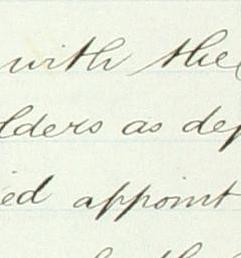 with the
lders as dep
ied appoint